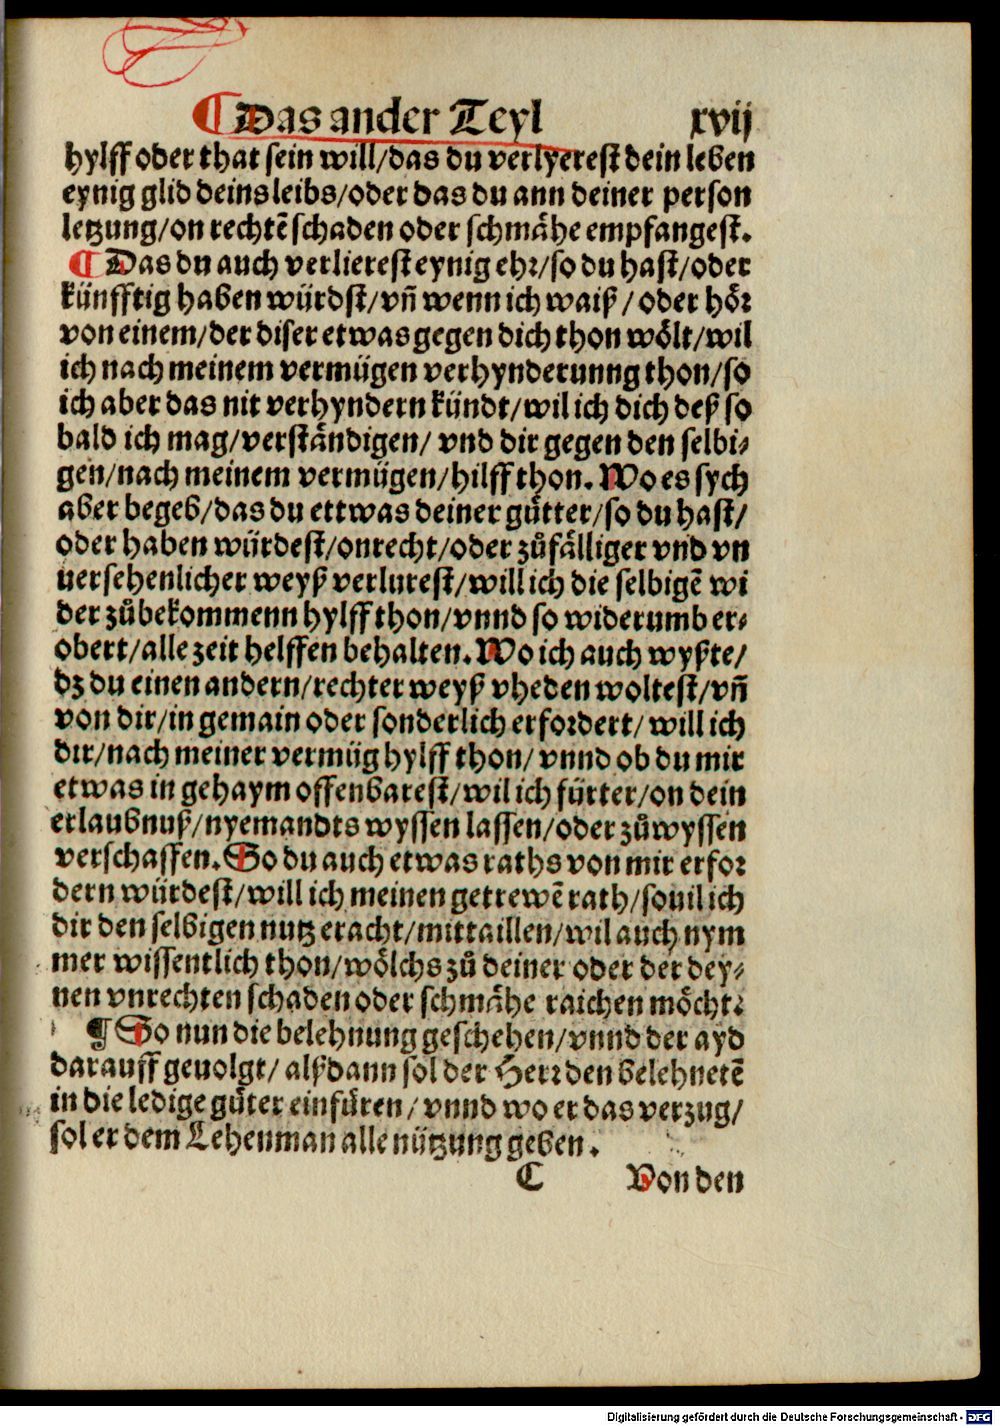 ¶ Das ander Teyl xvij
hylff oder that sein will/das du verlyerest dein leben
eynig glid deins leibs/oder das du ann deiner person
letzung/on rechtē schaden oder schmähe empfangest.
¶ Das du auch verlierest eynig ehr/so du hast/oder
künfftig haben würdst/vn̄ wenn ich waiß/oder hör
von einem/der diser etwas gegen dich thon wölt/wil
ich nach meinem vermügen verhynderunng thon/so
ich aber das nit verhyndern kündt/wil ich dich deß so
bald ich mag/verständigen/ vnd dir gegen den selbi⸗
gen/nach meinem vermügen/hilff thon. Wo es sych
aber begeb/das du ettwas deiner gütter/so du hast/
oder haben würdest/onrecht/oder zůfälliger vnd vn
uersehenlicher weyß verlurest/will ich die selbigē wi
der zůbekommenn hylff thon/vnnd so widerumb er⸗
obert/alle zeit helffen behalten. Wo ich auch wyßte/
dz du einen andern/rechter weyß vheden woltest/vn̄
von dir/in gemain oder sonderlich erfordert/will ich
dir/nach meiner vermüg hylff thon/vnnd ob du mir
etwas in gehaym offenbarest/wil ich fürter/on dein
erlaubnuß/nyemandts wyssen lassen/oder zůwyssen
verschaffen. So du auch etwas raths von mir erfor
dern würdest/will ich meinen getrewē rath/souil ich
dir den selbigen nutz eracht/mittaillen/wil auch nym
mer wissentlich thon/wölchs zů deiner oder der dey⸗
nen vnrechten schaden oder schmähe raichen möcht:
¶ So nun die belehnung geschehen/vnnd der ayd
darauff geuolgt/ alßdann sol der Herr den belehnetē
in die ledige güter einfüren/vnnd wo er das verzug/
sol er dem Lehenman alle nützung geben.
C Von den
Digitalisierung gefördert durch die Deutsche Forschungsgemeinschaft - DFG